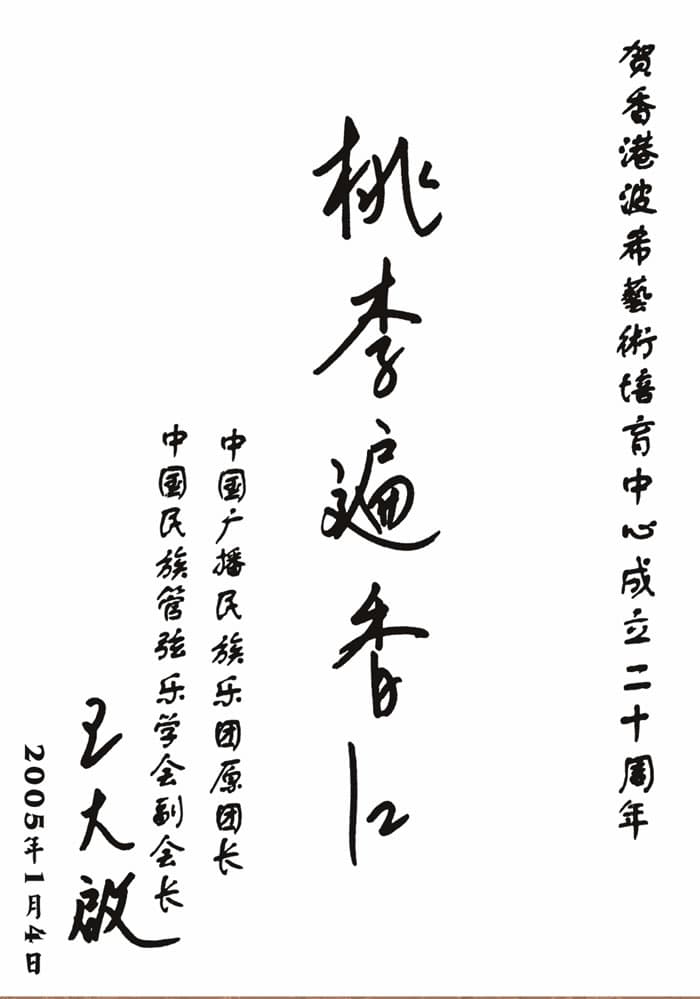 贺香港波希藝術培育中心成立二十周年
桃李遍香江
中国广播民族乐团原团长
中国民族管弦乐学会副会长
王大啟
2005年1月4日